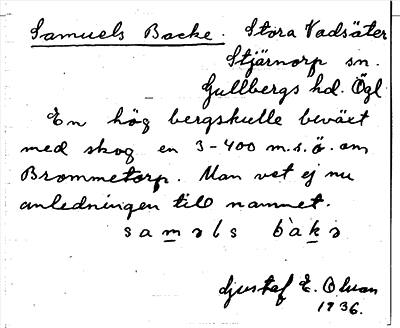 Samuels Backe. Stora Vadsäter
Stjärnorp sn.
Gullbergs hd. Ögl
En hög bergskulle beväxt
med skog en 3-400 m.s.ö. om
Brommetorp. Man vet ej nu
anledningen till namnet.
saməls bàkə
Gustaf E. Olsson
1936.